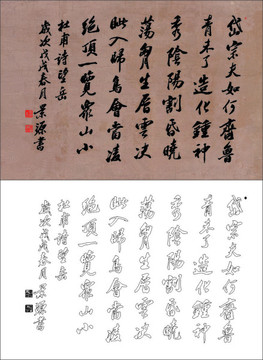 岱宗夫如何齊魯
青未了造化鍾神
秀陰陽割昏曉
蕩胷生層雲決
眥入歸鳥會當凌
絕頂一覽眾山小
杜甫詩望岳
歲次戊戌春月景源書
岱宗夫如何齊魯
青未了造化鍾神
秀陰陽割昏曉
蕩胷生層雲決
眥入歸鳥會當凌
絕頂一覽眾山小
杜甫詩望岳
歲次戊戌春月景源書